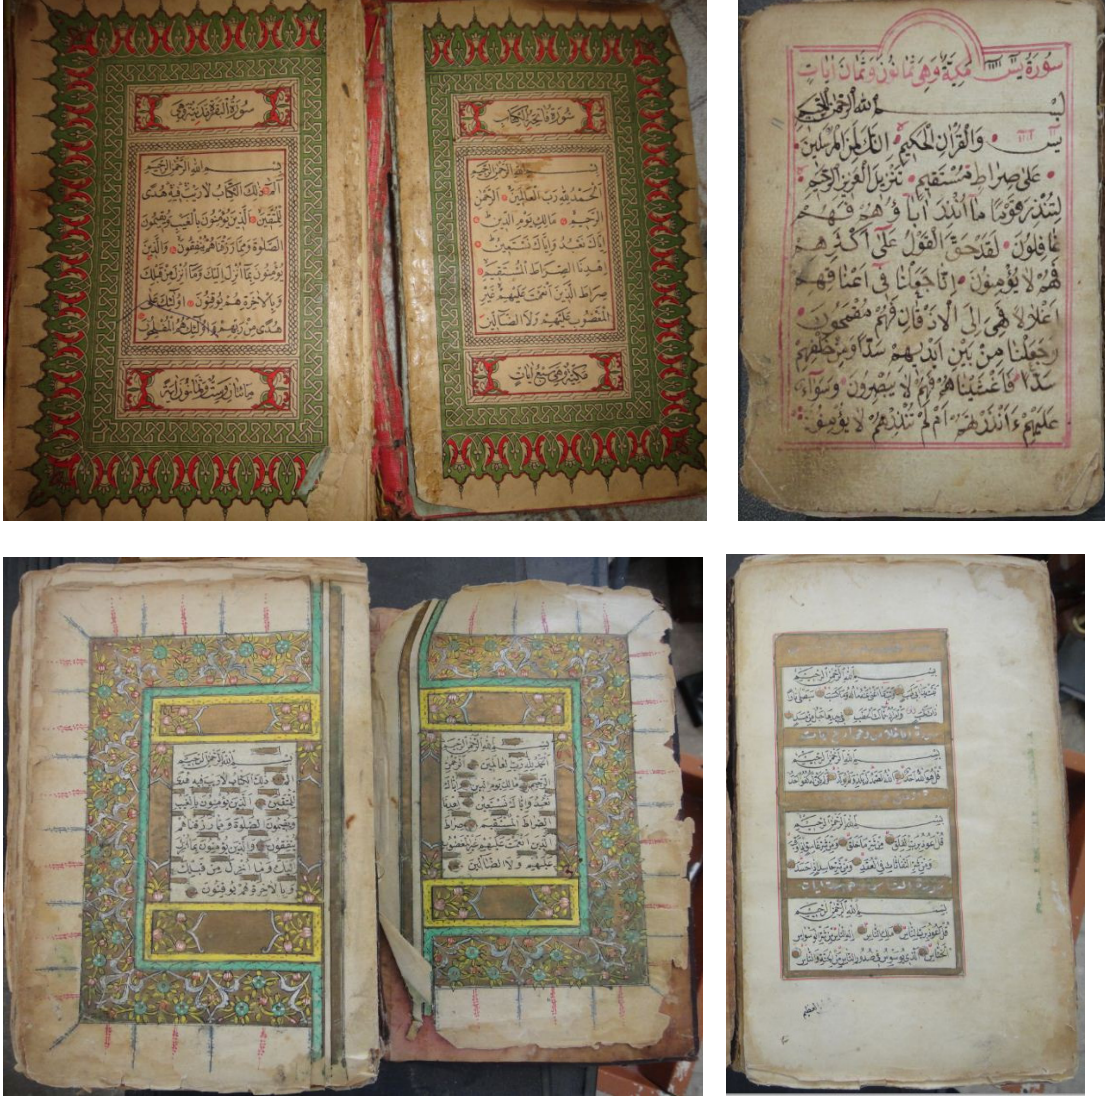 سورة فاتحة الكتاب
بسم الله الرحمن الرحيم
الحمد لله رب العالمين الرحمن
الرحيم مالك يوم الدين
اياك نعبد واياك نستعين
اهدنا الصراط المستقيم
صراط الذين انعمت عليهم غير
المغضوب عليهم ولا الضالين
مكية وهي سبع ايات
سورة البقرة مدنية وهي
بسم الله الرحمن الرحيم
الم ذلك الكتاب لا ريب فيه هدى
للمتقين الذين يؤمنون بالغيب ويقيمون
الصلوة ومما رزقناهم ينفقون والذين
يؤمنون بما انزل اليك وما انزل من قبلك
وبالاخرة هم يوقنون اولئك على
هدى من ربهم واولئك هم المفلحون
مائتان وست وثمانون اية
سورة يس مكية وهي ثمانون وثمان ايات
بسم الله الرحمن الرحيم
يس والقران الحكيم انك لمن المرسلين
على صراط مستقيم تنزيل العزيز الرحيم
لتنذر قوما ما انذر اباؤهم فهم
غافلون لقد حق القول على اكثرهم
فهم لا يؤمنون انا جعلنا في اعناقهم
اغلالا فهي الى الاذقان فهم مقمحون
وجعلنا من بين ايديهم سدا ومن خلفهم
سدا فاغشيناهم فهم لا يبصرون وسواء
عليهم ءانذرتهم ام لم تنذرهم لا يؤمنون
بسم الله الرحمن الرحيم
الحمد لله رب العالمين الرحمن
الرحيم مالك يوم الدين اياك
نعبد واياك نستعين اهدنا
الصراط المستقيم صراط
الذين انعمت عليهم غير المغضوب
عليهم ولا الضالين
بسم الله الرحمن الرحيم
الم ذلك الكتاب لا ريب فيه هدى
للمتقين الذين يؤمنون بالغيب
ويقيمون الصلوة ومما رزقناهم
ينفقون والذين يؤمنون بما انزل
اليك وما انزل من قبلك
وبالاخرة هم يوقنون
بسم الله الرحمن الرحيم
تبت يدا ابي لهب وتب ما اغنى عنه ماله وما كسب سيصلى نارا
ذات لهب وامراته حمالة الحطب في جيدها حبل من مسد
سورة الاخلاص وهي اربع ايات
بسم الله الرحمن الرحيم
قل هو الله احد الله الصمد لم يلد ولم يولد ولم يكن له كفوا احد
بسم الله الرحمن الرحيم
قل اعوذ برب الفلق من شر ما خلق ومن شر غاسق اذا وقب
ومن شر النفاثات في العقد ومن شر حاسد اذا حسد
سورة الناس وهي ست ايات
بسم الله الرحمن الرحيم
قل اعوذ برب الناس ملك الناس اله الناس من شر الوسواس
الخناس الذي يوسوس في صدور الناس من الجنة والناس
العظيم